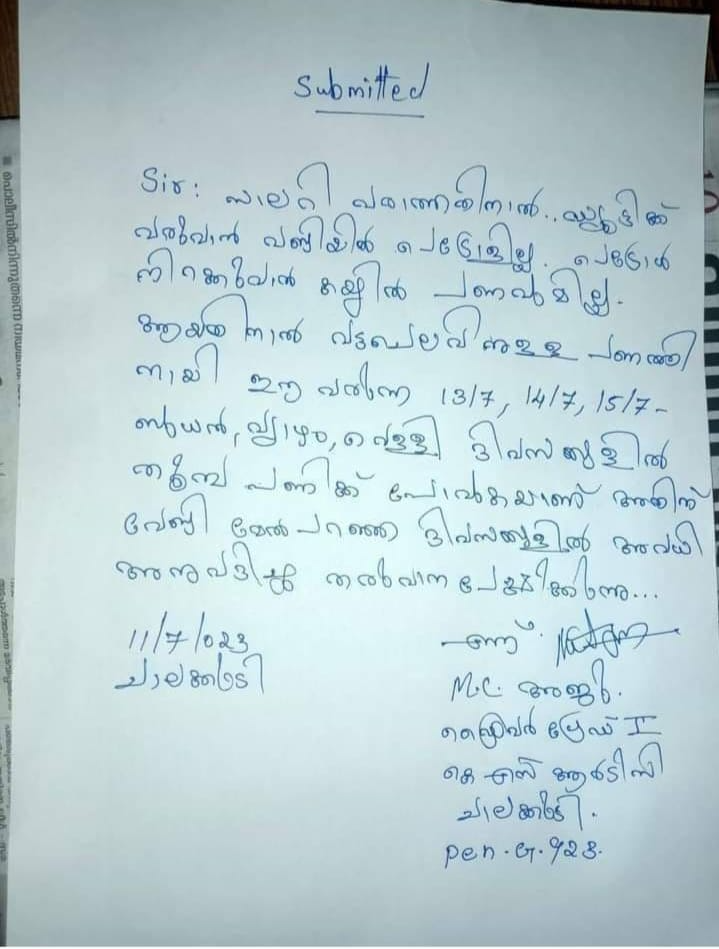 Submitted
Sir: സാലറി വരാത്തതിനാൽ.. ഡ്യൂട്ടിക്ക്
വരുവാൻ വണ്ടിയിൽ പെട്രോളില്ല. പെട്രോൾ
നിറക്കുവാൻ കയ്യിൽ പണവുമില്ല.
ആയതിനാൽ വട്ടചെലവിനുള്ള പണത്തി
നായി ഈ വരുന്ന 13/7, 14/7, 15/7-
ബുധൻ, വ്യാഴം, വെള്ളി ദിവസങ്ങളിൽ
തൂമ്പ പണിക്ക് പോവുകയാണ് അതിന്
വേണ്ടി മേൽപറഞ്ഞ ദിവസങ്ങളിൽ അവധി
അനുവദിച്ചു തരുവാനപേക്ഷിക്കുന്നു...
11/7/023
ചാലക്കുടി
എന്ന്
M.C. അജു.
ഡ്രൈവർ ഗ്രേഡ് I
കെ എസ് ആർടിസി
ചാലക്കുടി.
pen.G.923.